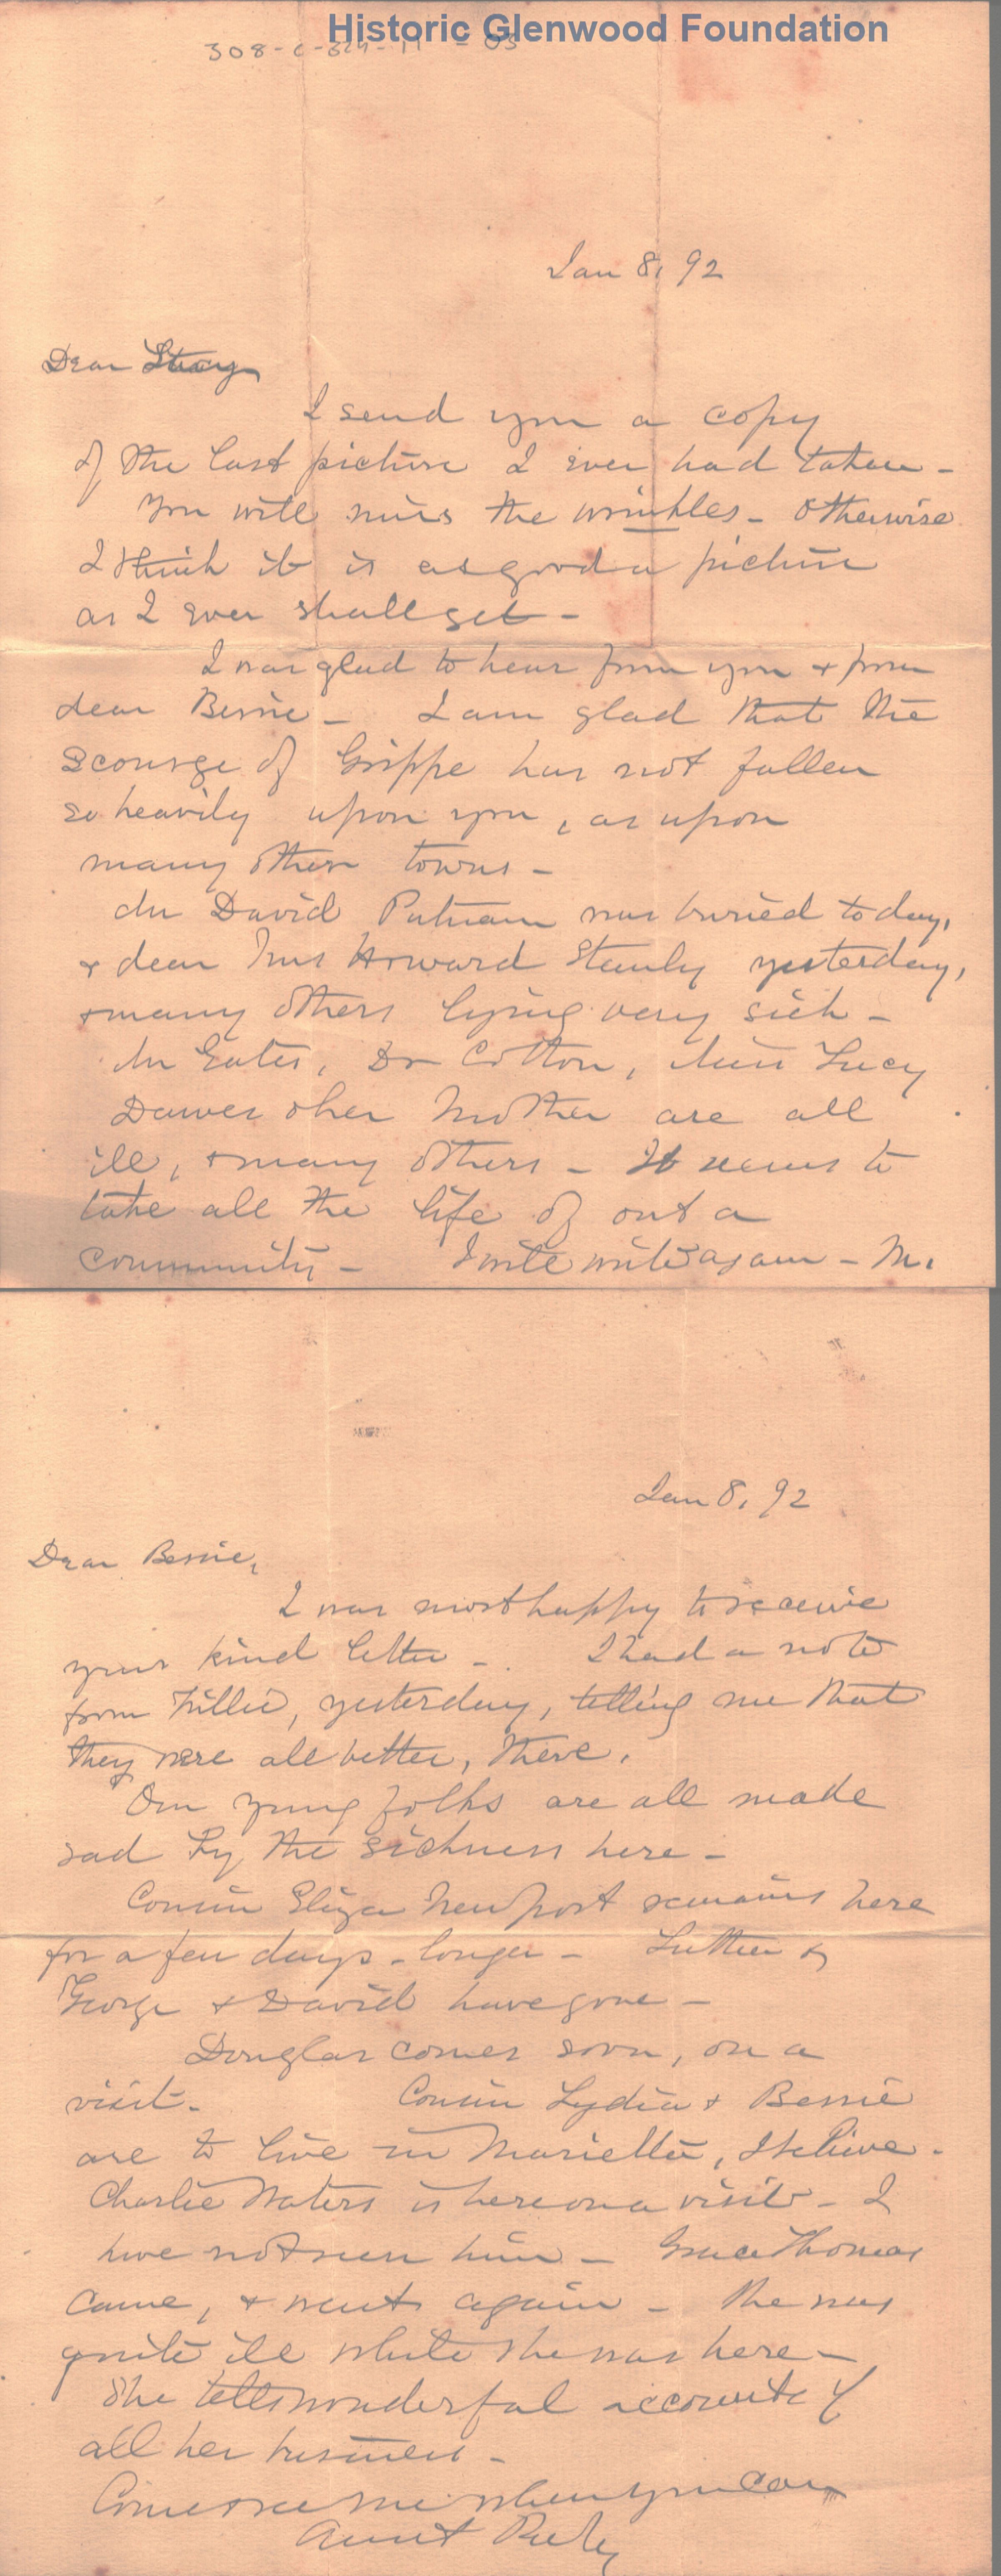 Historic Glenwood Foundation
308-C-
Jan 8, 92
Dear
I send you a copy
of the last picture I ever had taken -
You will miss the wrinkles - otherwise
I think it is as good a picture
as I ever shall get -
I was glad to hear from you & from
dear Bessie - I am glad that the
scourge of Grippe has not fallen
so heavily upon you, as upon
many other towns -
Mr David Putnam was buried today,
& dear Mrs Howard Stanly yesterday,
& many others lying very sick -
Mr Gates, Dr Cotton, Miss Lucy
Dawes & her Mother are all
ill, & many others - It seems to
take all the life of out a
community - I will write again - M.
Jan 8, 92
Dear Bessie,
I was most happy to receive
your kind letter - I had a note
from Tillie, yesterday, telling me that
they were all better, there.
Our young folks are all made
sad by the sickness here -
Cousin Eliza Newport remains here
for a few days - longer - Luther &
George & David have gone -
Douglas comes soon, on a
visit - Cousin Lydia & Bessie
are to live in Marietta, I believe -
Charlie Waters is here on a visit - I
have not seen him - Grace Thomas
came, & went again - She was
quite ill while she was here -
She tells wonderful accounts of
all her business -
Come & see me when you can
Aunt